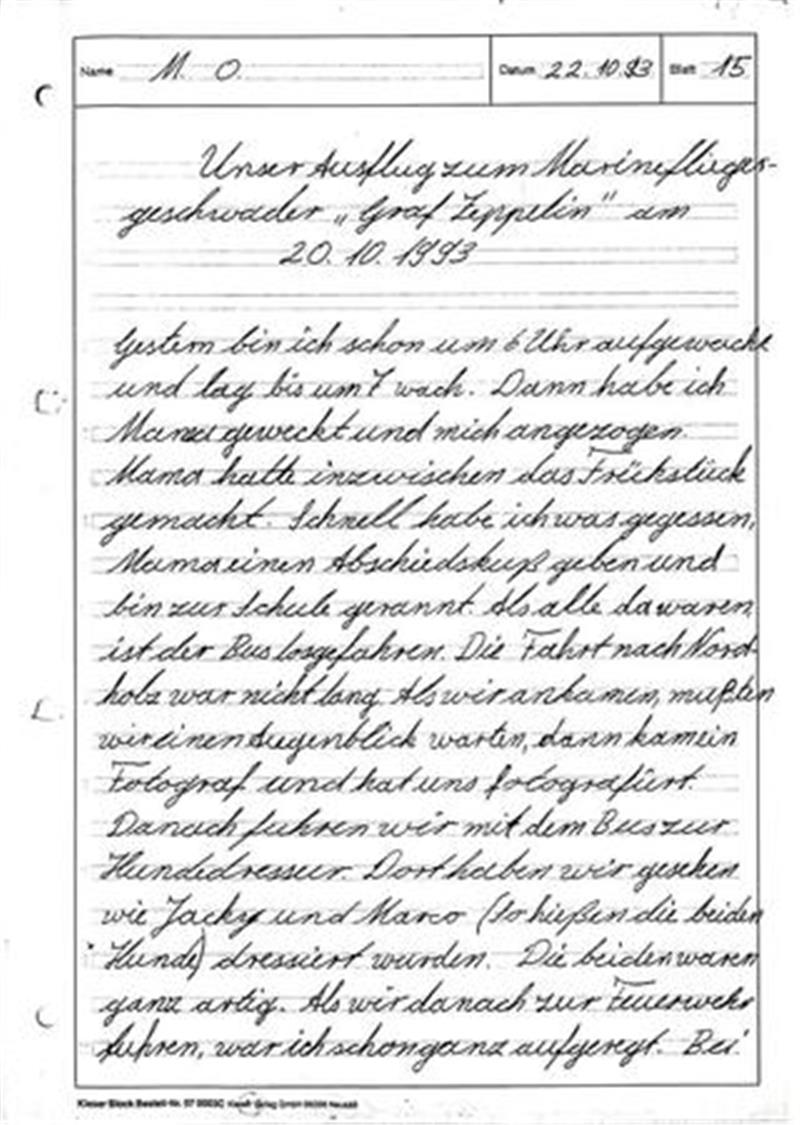 Name M. O. Datum 22.10.93 Blatt 15
Unser Ausflug zum Marineflieger-
geschwader „Graf Zeppelin" am
20.10.1993
Gestern bin ich schon um 6 Uhr aufgewacht
und lag bis um 7 wach. Dann habe ich
Mama geweckt und mich angezogen.
Mama hatte inzwischen das Frühstück
gemacht. Schnell habe ich was gegessen,
Mama einen Abschiedskuß geben und
bin zur Schule gerannt. Als alle da waren,
ist der Bus losgefahren. Die Fahrt nach Nord-
holz war nicht lang. Als wir ankamen, mußten
wir einen Augenblick warten, dann kam ein
Fotograf und hat uns fotografiert.
Danach fuhren wir mit dem Bus zur
Hundedressur. Dort haben wir gesehen
wie Jacky und Marco (so hießen die beiden
Hunde) dressiert wurden. Die beiden waren
ganz artig. Als wir danach zur Feuerwehr
fuhren, war ich schon ganz aufgeregt. Bei